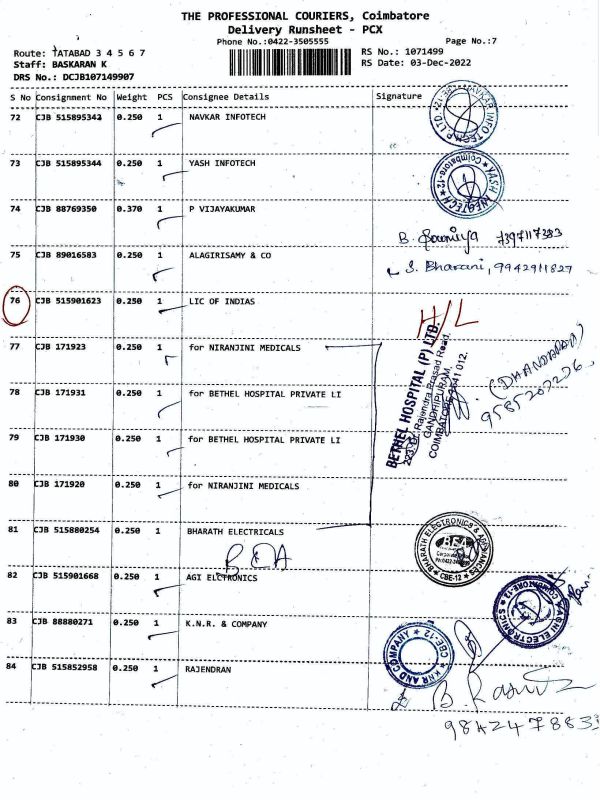 THE PROFESSIONAL COURIERS, Coimbatore
Delivery Runsheet - PCX
Phone No.:0422-3505555 Page No.:7
Route: TATABAD 3 4 5 6 7 RS No.: 1071499
Staff: BASKARAN K RS Date: 03-Dec-2022
DRS No.: DCJB107149907
S No Consignment No Weight PCS Consignee Details Signature
72 CJB 515895342 0.250 1 NAVKAR INFOTECH
73 CJB 515895344 0.250 1 YASH INFOTECH
YASH INFOTECH Coimbatore-12
74 CJB 88769350 0.370 1 P VIJAYAKUMAR
B. Sowmiya 7397117383
75 CJB 89016583 0.250 1 ALAGIRISAMY & CO
S. Bharani, 9942911827
76 CJB 515901623 0.250 1 LIC OF INDIAS
H/L
77 CJB 171923 0.250 1 for NIRANJINI MEDICALS
78 CJB 171931 0.250 1 for BETHEL HOSPITAL PRIVATE LI
79 CJB 171930 0.250 1 for BETHEL HOSPITAL PRIVATE LI
BETHEL HOSPITAL (P) LTD.
Rajendra Prasad Road,
GANDHIPURAM,
COIMBATORE-641 012.
(DHANDAPANI)
9585202226,
80 CJB 171920 0.250 1 for NIRANJINI MEDICALS
81 CJB 515880254 0.250 1 BHARATH ELECTRICALS
BEA
BHARATH ELECTRONICS & APPLIANCES
BEA
CBE-12
82 CJB 515901668 0.250 1 AGI ELCTRONICS
AGNI ELECTRONICS
83 CJB 88880271 0.250 1 K.N.R. & COMPANY
KNR AND COMPANY CBE-12
84 CJB 515852958 0.250 1 RAJENDRAN